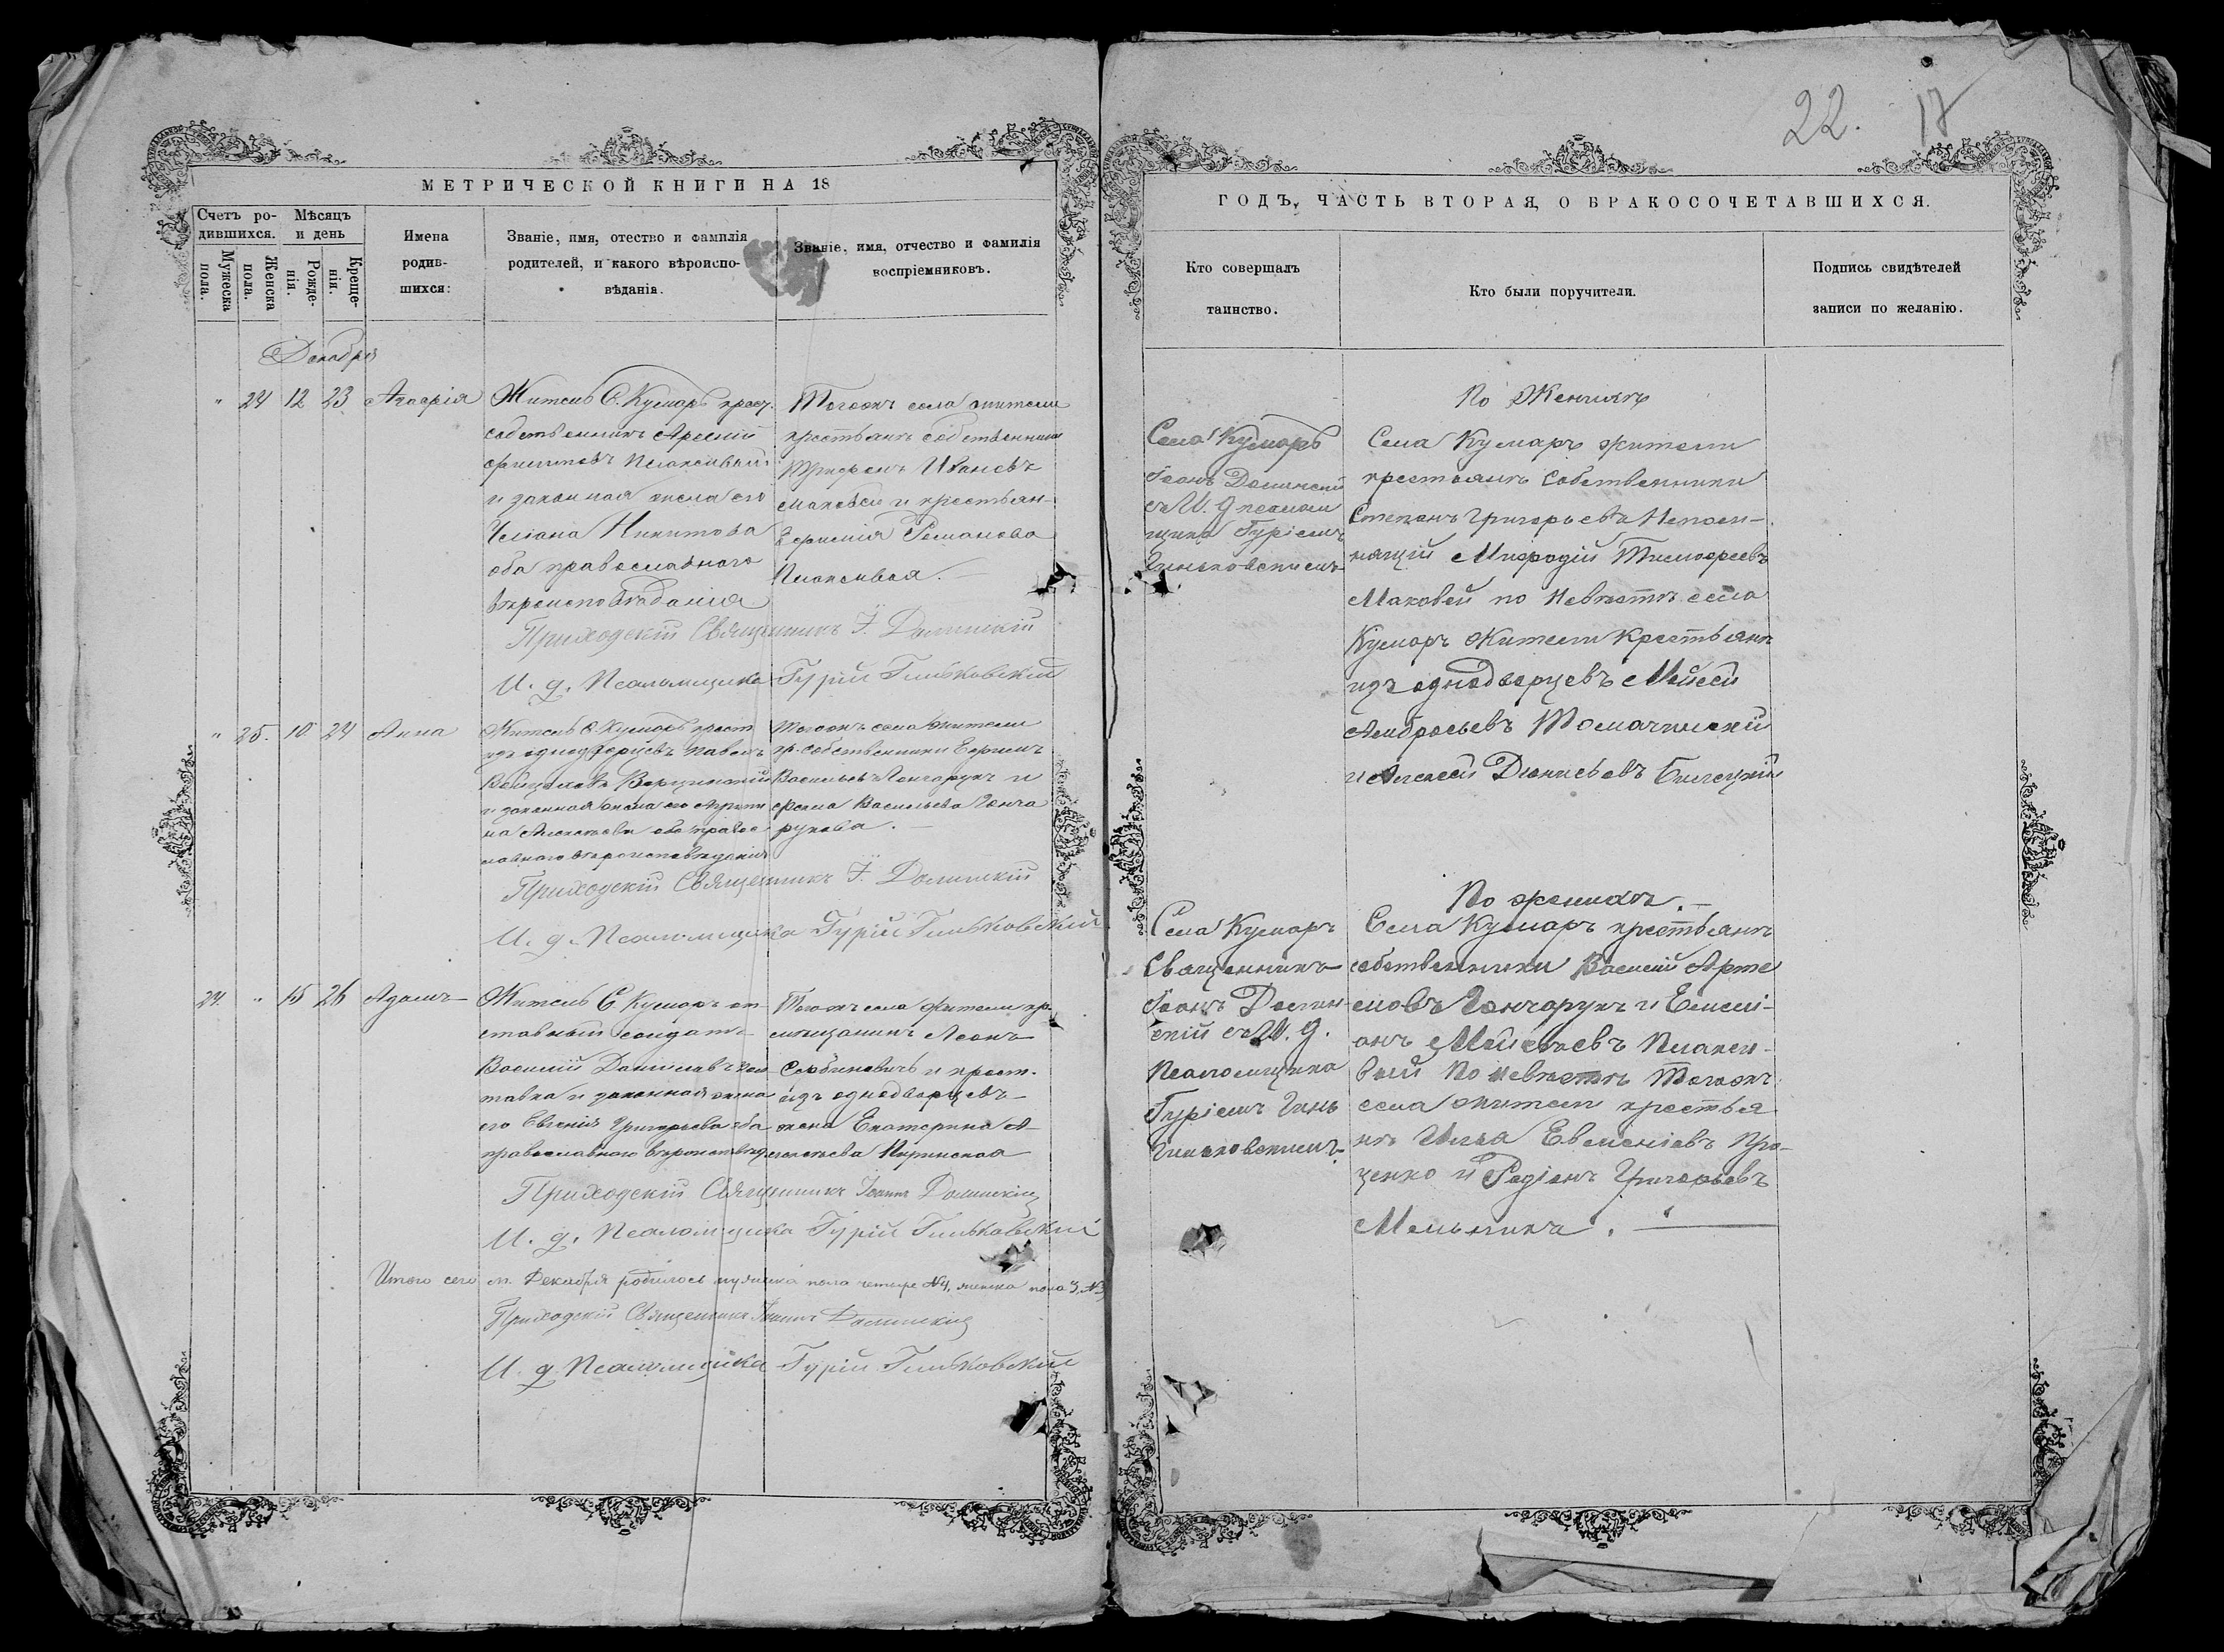 МЕТРИЧЕСКОЙ КНИГИ НА 18
Счетъ ро-
дившихся.
Мѣсяцъ
и день
Мужеска
пола.
Женска
пола.
Рожде-
нія.
Креще-
нія.
Имена
родив-
шихся:
Званіе, имя, отество и фамилія
родителей, и какого вѣроиспо-
вѣданія.
Званіе, имя, отчество и фамилія
воспріемниковъ.
Декабрь
" 24 12 23
Житель С. Кумаръ крест.
собственникъ Арсеній
и законная жена его
Никитова
оба православнаго
вѣроисповѣданія
Тогожъ села жители
крестьянъ собственники
Трифонъ Ивановъ
Маковей и крестьян-
Евфимія Романова
Приходскій Священникъ І. Долинскій
И. д. Псаломщика Гурій Гиньковскій
" 25. 10 24 Анна
Житель С. Кумаръ крест
изъ однодворцевъ Павелъ
и законная жена его
оба право
славнаго вѣроисповѣданія
Тогожъ села жители
кр. собственники
Васильевъ Гончарукъ и
Васильева Гонча
рукова.
Приходскій Священникъ І. Долинскій
И. д. Псаломщика Гурій Гиньковскій
24. " 15 26 Адамъ
Житель С. Кумаръ от
ставный солдатъ
Василій Даниловъ
и законная жена
его Евгенія Григорьева оба
православнаго
Тогожъ села жители кр.
Сербиновичъ и крест.
изъ однодворцевъ
жена Екатерина А-
Приходскій Священникъ Іоаннъ Долинскій
И. д. Псаломщика Гурій Гиньковскій
Итого сего м. Декабря родилось мужеска пола четыре №4, женска пола 3, №3
Приходскій Священникъ Іоаннъ Долинскій
И. д. Псаломщика Гурій Гиньковскій
22. 17
ГОДЪ, ЧАСТЬ ВТОРАЯ, О БРАКОСОЧЕТАВШИХСЯ.
Кто совершалъ
таинство.
Кто были поручители.
Подпись свидѣтелей
записи по желанію.
Села Кумаръ
Іоанъ Долинскій
съ И. д псалом
щика Гуріемъ
Гиньковскимъ
По Женихѣ
Села Кумаръ жители
крестьянъ собственники
Степанъ Григорьевъ
Мефодій Тимофеевъ
Маковей по Невѣстѣ села
Кумаръ жители Крестьянъ
изъ однодворцевъ Мойсей
Амбросьевъ Томачинскій
и Алексей Діонисьевъ Билецкій
Села Кумаръ
Священникъ
Іоанъ Долин-
скій съ И. д.
Псаломщика
Гуріемъ Гинь
Гиньковскимъ
По женихѣ.
Села Кумаръ крестьянъ
собственники Василій Арте
мовъ Гончарукъ и Емели-
анъ Мойсеевъ Плакси-
вый По невѣстѣ Тогожъ
села жители крестья
нъ Илья Евменіевъ Про-
ценко и Родіонъ Григорьевъ
Мельникъ.